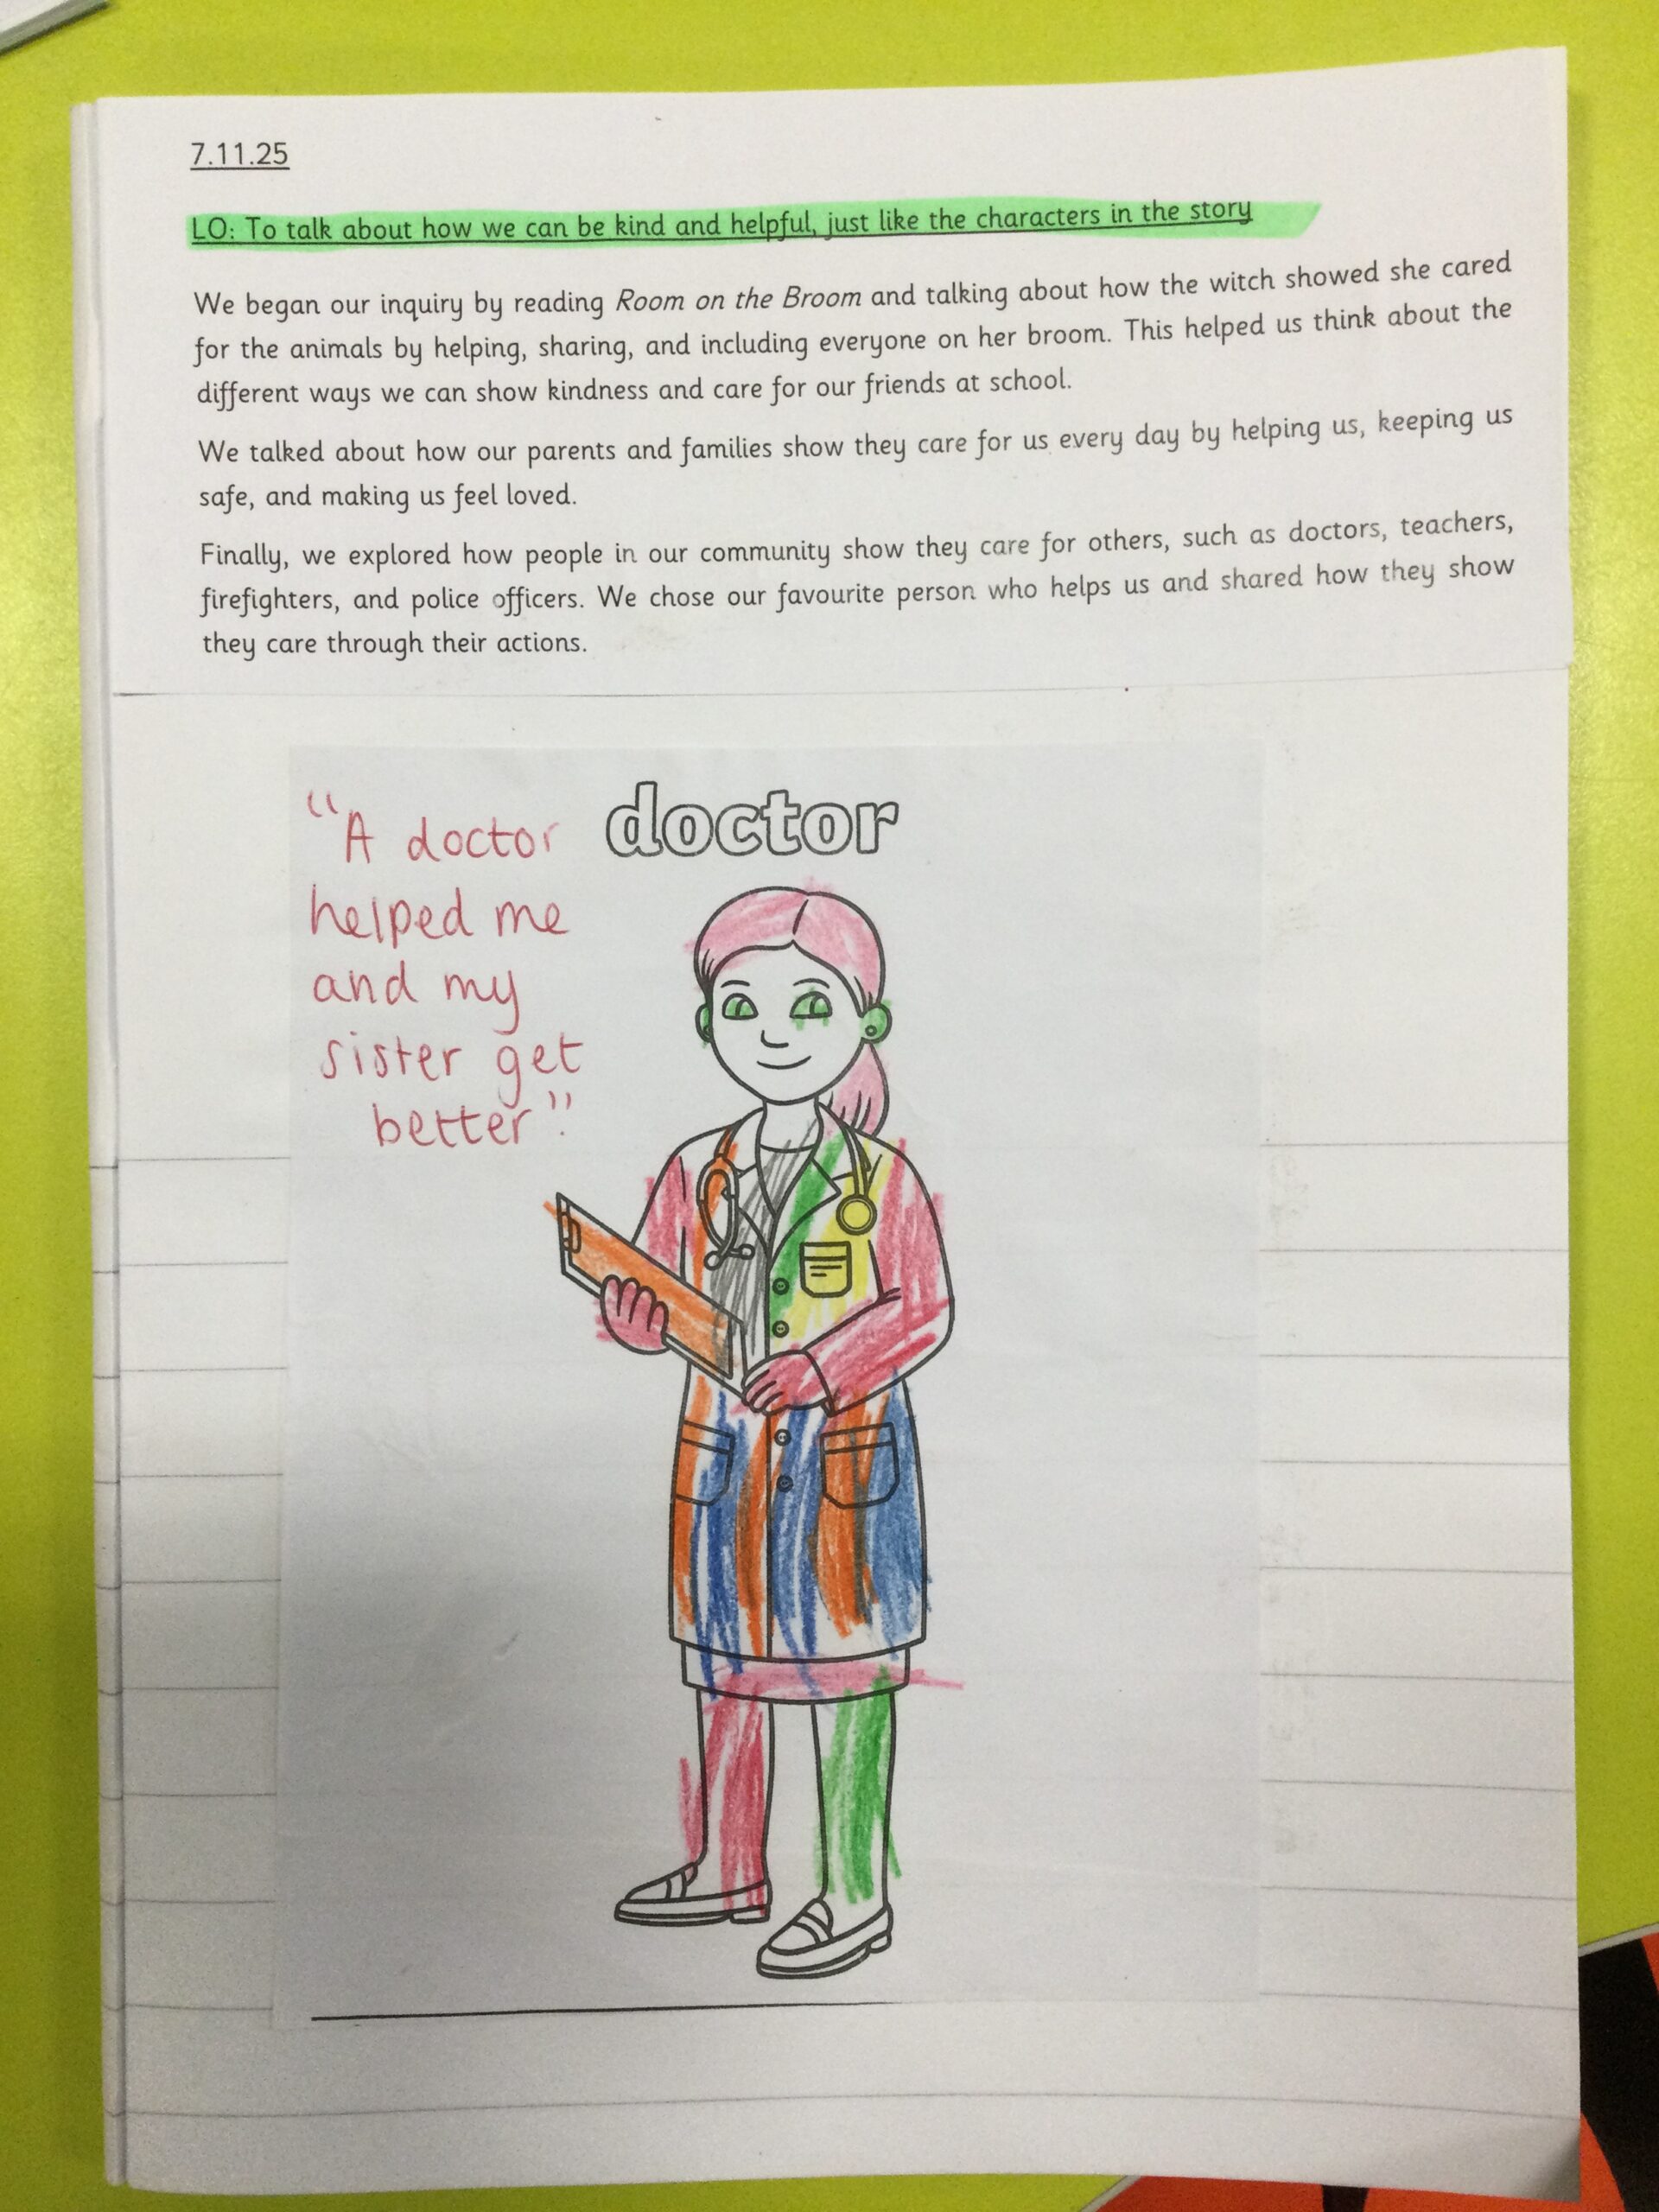 7.11.25
LO: To talk about how we can be kind and helpful, just like the characters in the story
We began our inquiry by reading Room on the Broom and talking about how the witch showed she cared
for the animals by helping, sharing, and including everyone on her broom. This helped us think about the
different ways we can show kindness and care for our friends at school.
We talked about how our parents and families show they care for us every day by helping us, keeping us
safe, and making us feel loved.
Finally, we explored how people in our community show they care for others, such as doctors, teachers,
firefighters, and police officers. We chose our favourite person who helps us and shared how they show
they care through their actions.
doctor
"A doctor
helped me
and my
sister get
better".